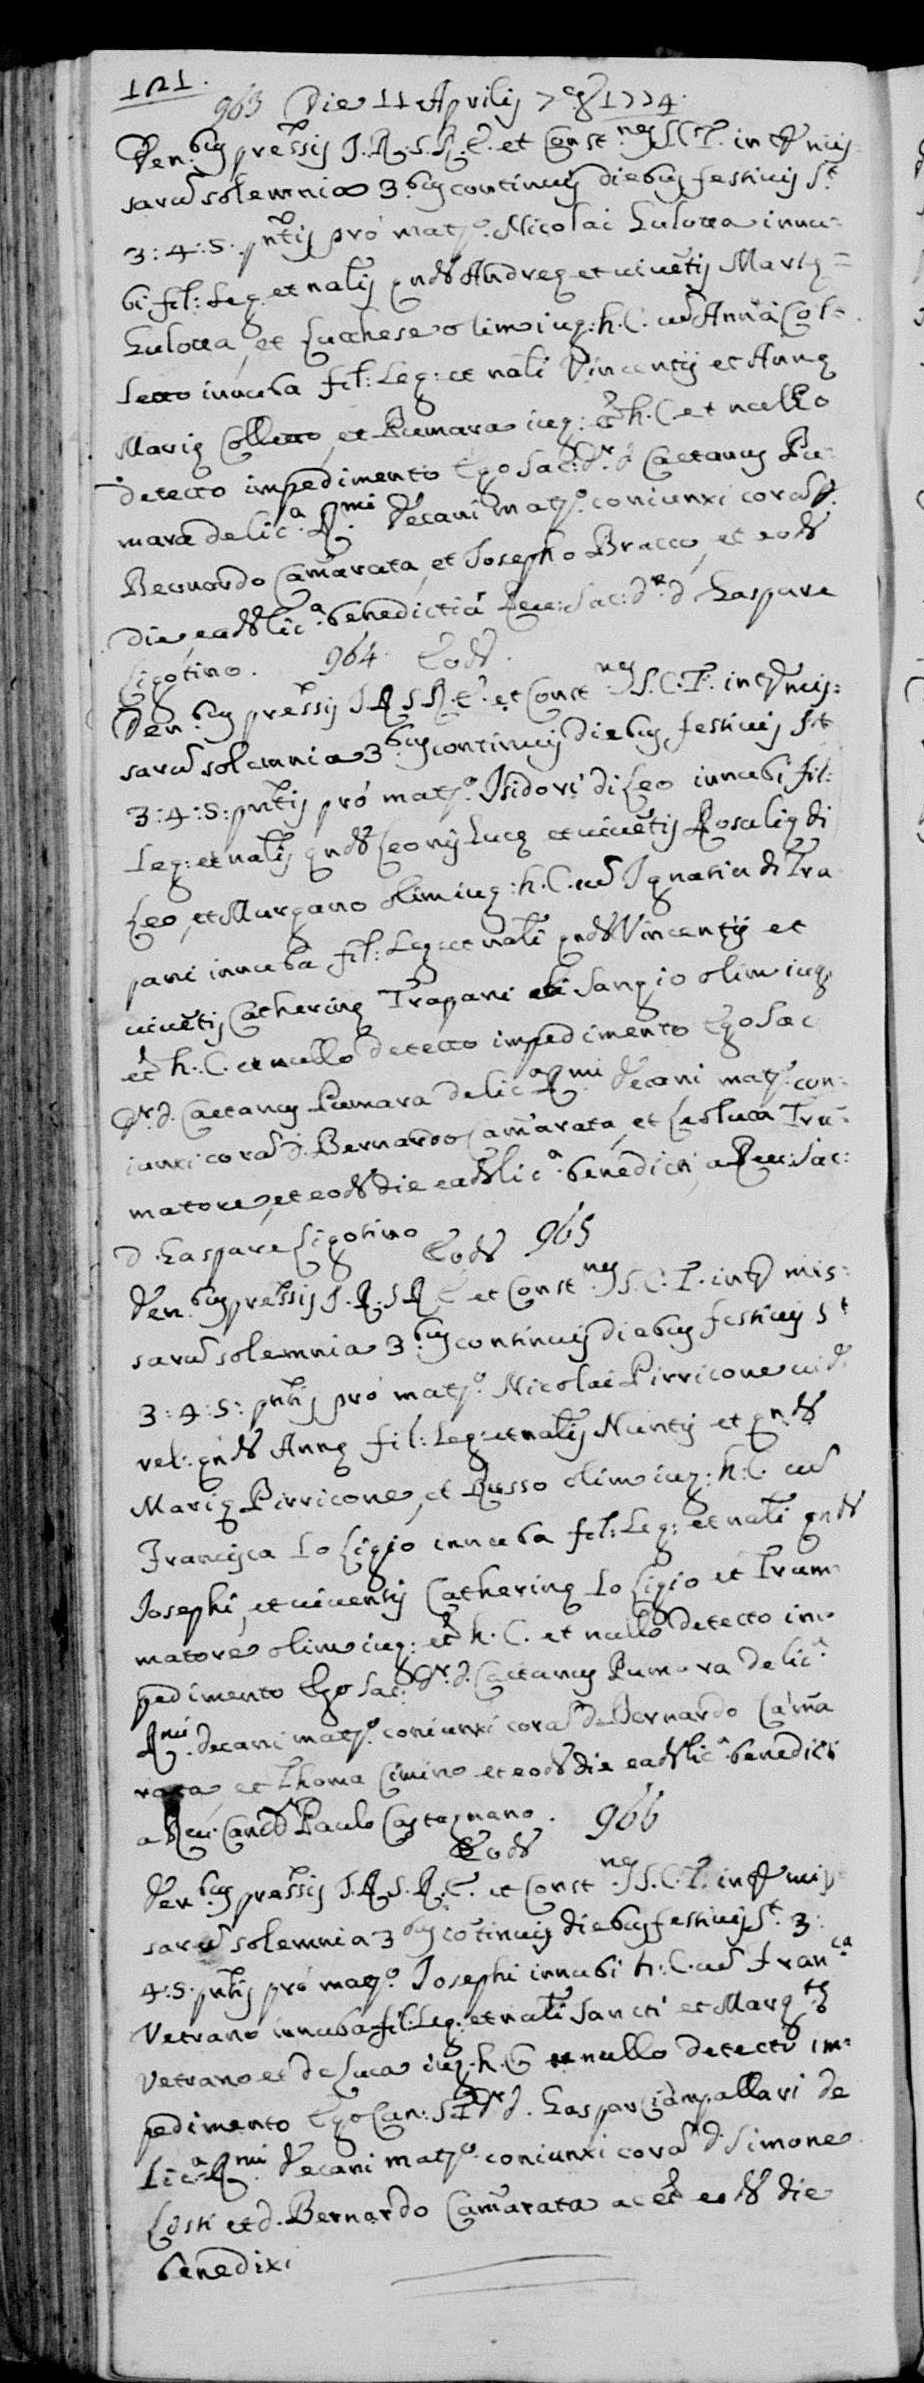 121.
963 Die 11 Aprilis 7ᵉ 8 1774.
Den.bus pressis J. R. S. R. E. et Const.nes S.C.T. inter mis=
sarū solemnia 3.bus continuis diebus festivis S.t
3: 4: 5. pn̄tis pro mat.o Nicolai Lulocca innu=
bi fil: Leg. et nalis qnd Andreę et uiuētis Marię=
Lulocca, et Lucchese olim iug: h. C. cū Anna Col=
letto innuba fil: Leg: et nali Vincentij et Annę
Marię Colletto, et Pumara iug: et h. C. et nullo
detecto impedimento Ego Sac: Dr. d Caetanus Pu=
mara de lic.a R.mi Decani mat.o coniunxi corā d.
Bernardo Cam̄arata, et Josepho Bracco, et eod
die, ead lic.a benedicti a Reu: Sac: dr. d Gaspare
Ligotino. 964 Eod.
Den.bus pressis J. R S R. E. et Const.nes S.C.T. inter mis=
sarū solemnia 3.bus continuis diebus festivis S.t
3: 4: 5: pn̄tis pro mat.o Isidori di Leo innubi fil:
Leg: et nalis qnd Leonis Lucę et uiuētis Rosalię di
Leo, et Murgano olim iug: h. C. cū Ignatia di Tra
pani innuba fil: Leg: et nali qnd Vincentij et
uiuētis Catherinę Trapani et Sangio olim iug
et h. C. et nullo detecto impedimento Ego Sac
Dr. d. Caetanus Pumara de lic.a R.mi Decani mat.o con=
iunxi corā d. Bernardo Cam̄arata, et Leoluca Tru=
matore, et eod die ead lic.a benedicti, a Reu: Sac:
d. Gaspare Ligotino Eod 965
Den.bus pressis J. R. S R E et Const.nes S. C. T. inter mis=
sarū solemnia 3.bus continuis diebus festivis S.t
3: 4: 5: pn̄tis pro mat.o Nicolai Pirricone uid.
rel: qnd Annę fil: Leg: et nalis Nuntij et qnd
Marię Pirricone, et Russo olim iug: h. C. cū
Francisca Lo Ligio innuba fil: Leg: et nali qnd
Josephi, et uiuentis Catherinę Lo Ligio et Trum=
matore olim iug: et h. C. et nullo detecto im=
pedimento Ego Sac: Dr. d. Caetanus Pumara de lic.a
R.mi Decani mat.o coniunxi corā d. Bernardo Cam̄a
rata, et Thoma Cimino et eod die ead lic.a benedicti
a Reu. Can. Dr Paulo Castagnano. 966
Eod
Den.bus pressis J. R. S. R. E. et Const.nes S. C. T. inter mis=
sarū solemnia 3.bus cōtinuis diebus festivis S.t 3:
4: 5. pn̄tis pro mat.o Josephi innubi h. C. cū Fran.ca
Vetrano innuba fil: Leg: et nali Sancti et Marg.tę
Vetrano et de Luca iug. h. C et nullo detecto im=
pedimento Ego Can: S.T.Dr. d. Gaspar Ciampallari de
Lic.a R.mi Decani mat.o coniunxi corā d. Simone
Losti et d. Bernardo Cam̄arata ac et eod die
benedixi